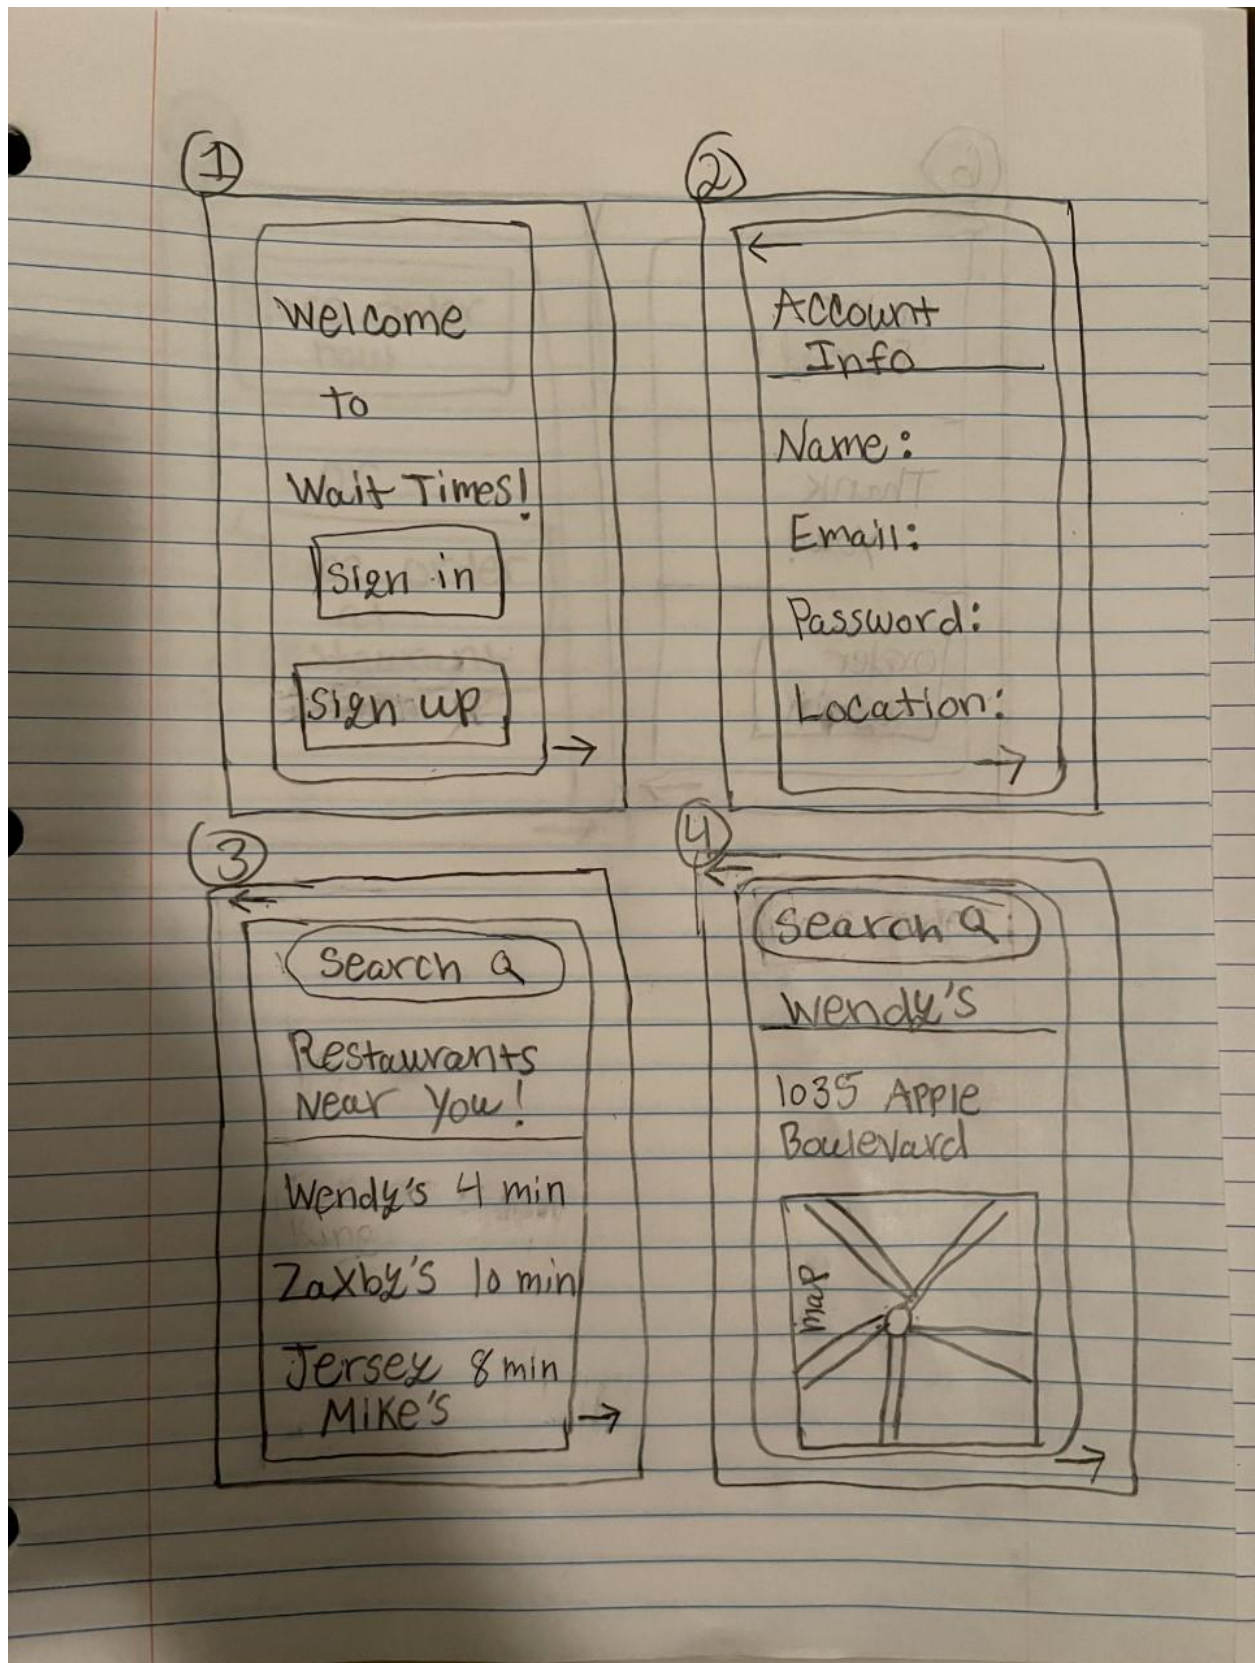 1
Welcome
to
Wait Times!
sign in
sign up
2
Account
Info
Name:
Email:
Password:
Location:
3
Search
Restaurants
Near You!
Wendy's 4 min
King
Zaxby's 10 min
Jersey 8 min
Mike's
4
Search
Wendy's
1035 Apple
Boulevard
map